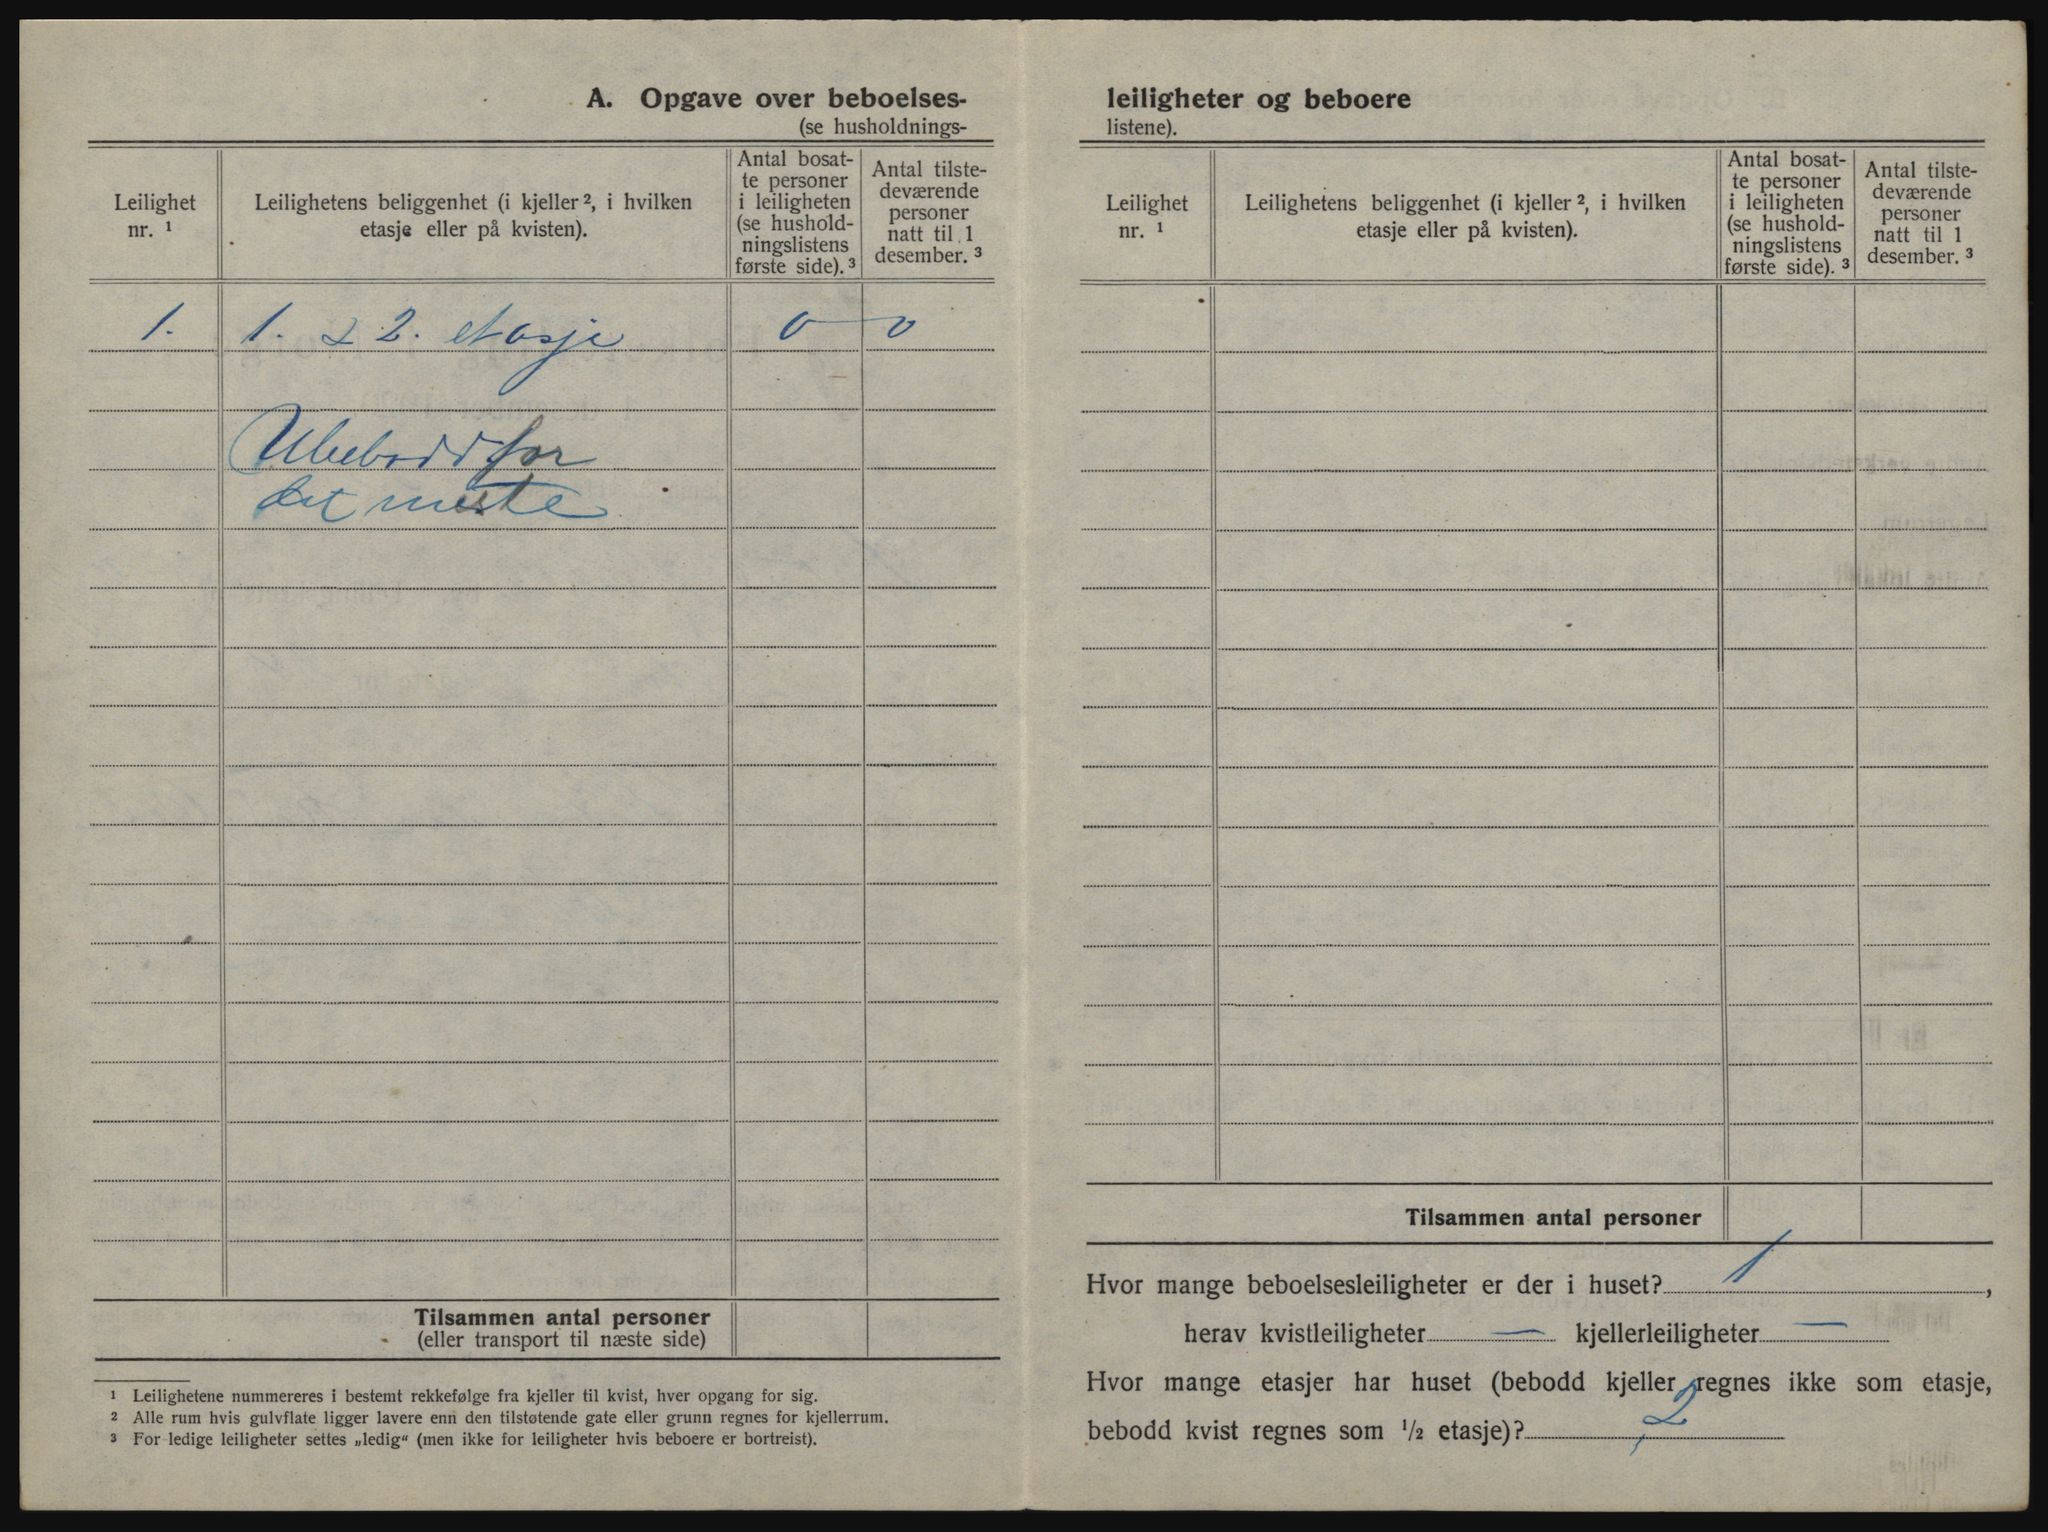 A. Opgave over beboelses-
(se husholdnings-
Leilighet
nr. ¹
Leilighetens beliggenhet (i kjeller ², i hvilken
etasje eller på kvisten).
Antal bosat-
te personer
i leiligheten
(se hushold-
ningslistens
første side). ³
Antal tilste-
deværende
personer
natt til 1
desember. ³
1. 1. & 2. etasje 0 0
Ubebodd for
det meste
Tilsammen antal personer
(eller transport til næste side)
¹ Leilighetene nummereres i bestemt rekkefølge fra kjeller til kvist, hver opgang for sig.
² Alle rum hvis gulvflate ligger lavere enn den tilstøtende gate eller grunn regnes for kjellerrum.
³ For ledige leiligheter settes „ledig“ (men ikke for leiligheter hvis beboere er bortreist).
leiligheter og beboere
listene).
Leilighet
nr. ¹
Leilighetens beliggenhet (i kjeller ², i hvilken
etasje eller på kvisten).
Antal bosat-
te personer
i leiligheten
(se hushold-
ningslistens
første side). ³
Antal tilste-
deværende
personer
natt til 1
desember. ³
Tilsammen antal personer
Hvor mange beboelsesleiligheter er der i huset? 1,
herav kvistleiligheter — kjellerleiligheter —
Hvor mange etasjer har huset (bebodd kjeller regnes ikke som etasje,
bebodd kvist regnes som ½ etasje)? 2